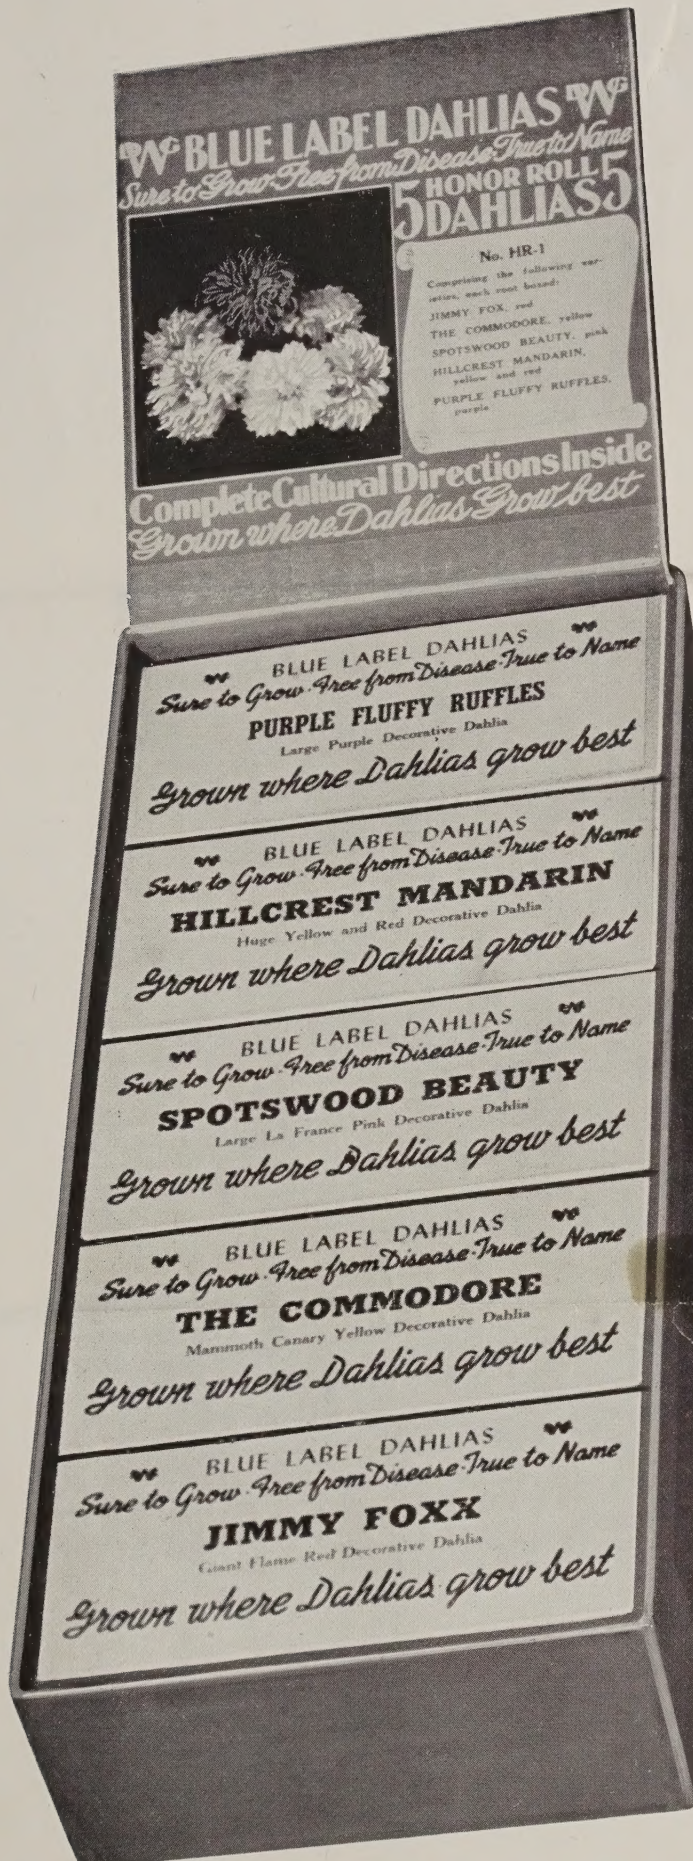 DWG BLUE LABEL DAHLIAS DWG
Sure to Grow-Free from Disease-True to Name
5 HONOR ROLL 5
DAHLIAS
No. HR-1
Comprising the following var-
ieties, each root boxed:
JIMMY FOX, red
THE COMMODORE, yellow
SPOTSWOOD BEAUTY, pink
HILLCREST MANDARIN,
yellow and red
PURPLE FLUFFY RUFFLES,
purple
Complete Cultural Directions Inside
Grown where Dahlias Grow best
BLUE LABEL DAHLIAS
Sure to Grow-Free from Disease-True to Name
PURPLE FLUFFY RUFFLES
Large Purple Decorative Dahlia
Grown where Dahlias grow best
BLUE LABEL DAHLIAS
Sure to Grow-Free from Disease-True to Name
HILLCREST MANDARIN
Huge Yellow and Red Decorative Dahlia
Grown where Dahlias grow best
BLUE LABEL DAHLIAS
Sure to Grow-Free from Disease-True to Name
SPOTSWOOD BEAUTY
Large La France Pink Decorative Dahlia
Grown where Dahlias grow best
BLUE LABEL DAHLIAS
Sure to Grow-Free from Disease-True to Name
THE COMMODORE
Mammoth Canary Yellow Decorative Dahlia
Grown where Dahlias grow best
BLUE LABEL DAHLIAS
Sure to Grow-Free from Disease-True to Name
JIMMY FOXX
Giant Flame Red Decorative Dahlia
Grown where Dahlias grow best